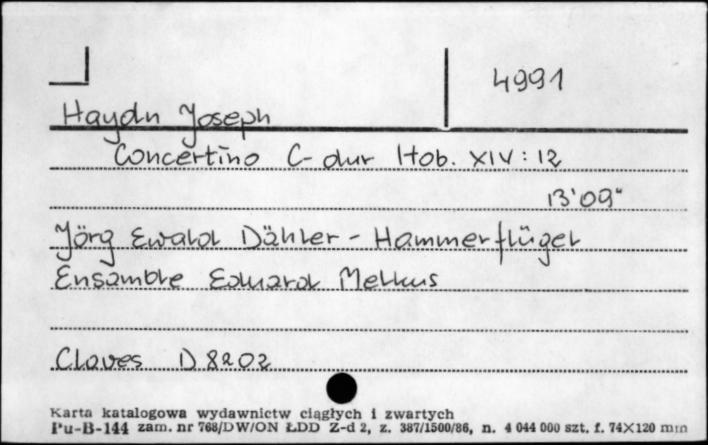 4991
Haydn Joseph
Concertino C-dur Hob. XIV: 12
13'09"
Jörg Ewald Dähler - Hammerflügel
Ensamble Eduard Melkus
Claves D 8202
Karta katalogowa wydawnictw ciągłych i zwartych
Pu-B-144 zam. nr 768/DW/ON ŁDD Z-d 2, z. 387/1500/86, n. 4 044 000 szt. f. 74×120 mm